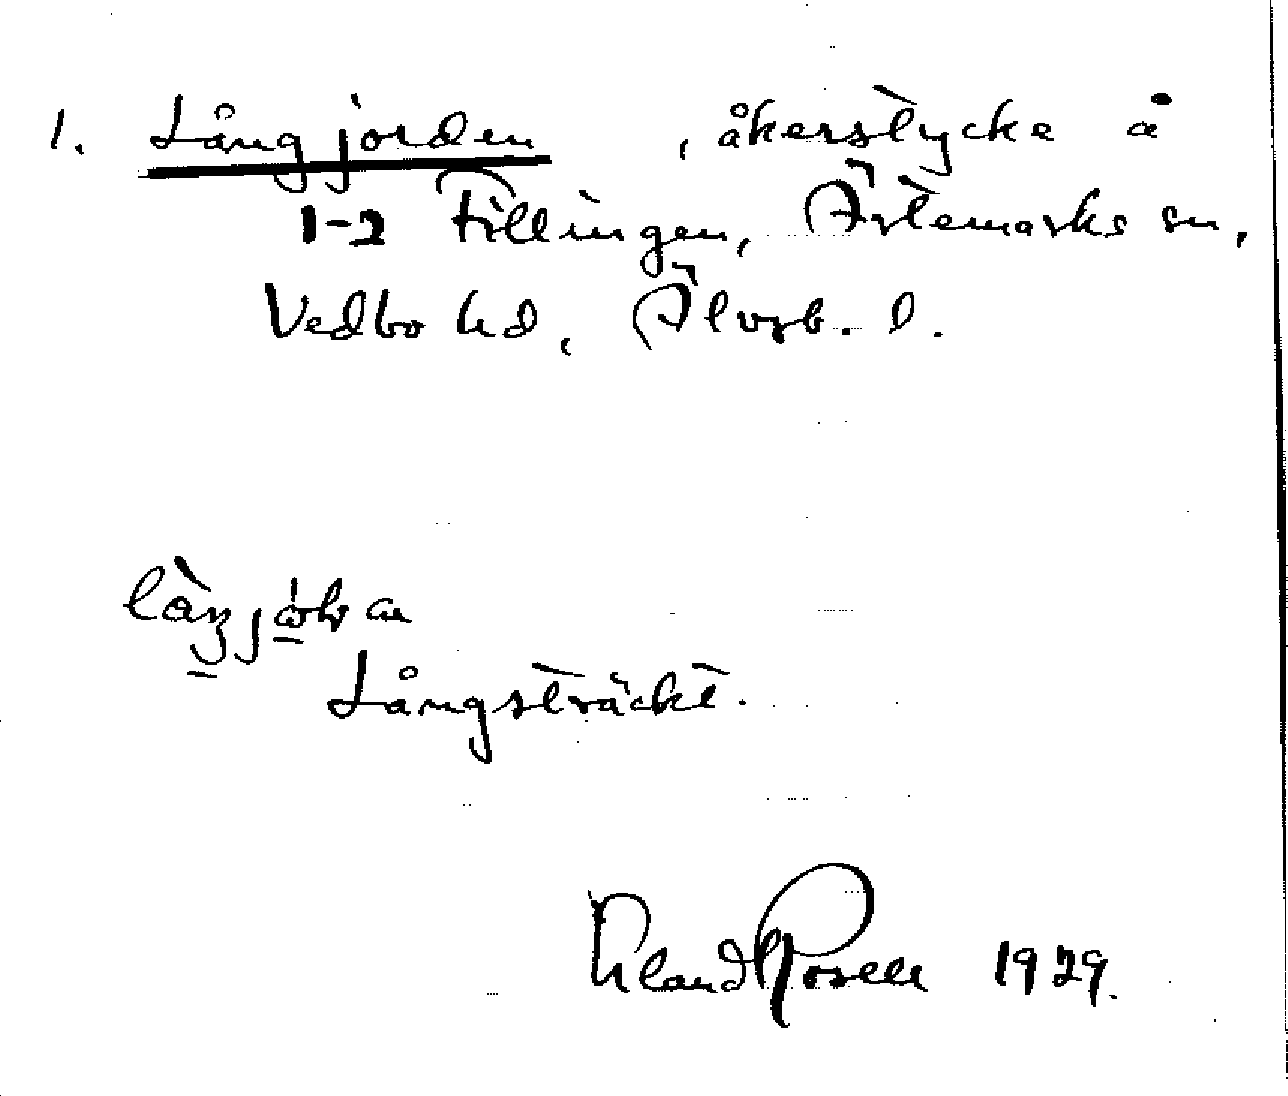 1. Långjorden, åkerstycke å
1-2 Tillingen, Ärtemarks sn,
Vedbo hd, Älvsb. l.
Långsträckt.
Rosell 1929.